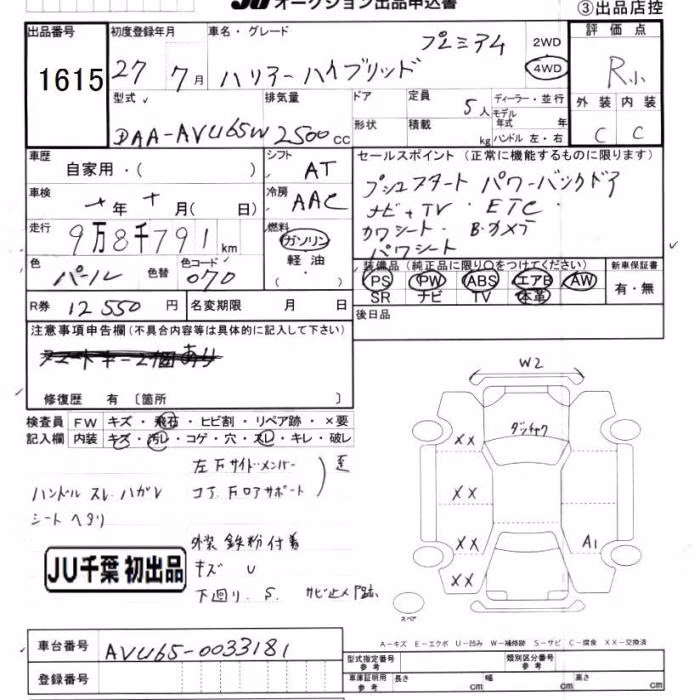 JU オークション出品申込書
③出品店控
出品番号 初度登録年月 車名・グレード 評価点
1615 27年 7月 ハリアーハイブリッド プレミアム 2WD 4WD R小
型式 排気量 ドア 定員 ディーラー・並行 外装 内装
DAA-AVU65W 2500cc 5人 モデル年式 年 C C
形状 積載 kg ハンドル 左・右
車歴 自家用・( ) シフト AT セールスポイント (正常に機能するものに限ります)
車検 年 月( 日) 冷房 AAC プッシュスタート パワーバックドア
ナビ+TV・ETC・
走行 9万8千791km 燃料 ガソリン 軽油 ( ) カワシート・B・カメラ
パワシート
色 パール 色替 色コード 070 装備品 (純正品に限り○をつけてください) 新車保証書
PS PW ABS エアB AW 有・無
SR ナビ TV 本革
R券 12550円 名変期限 月 日 後日品
注意事項申告欄 (不具合内容等は具体的に記入して下さい)
スマートキー2個あり
修復歴 有 〔箇所 〕
検査員記入欄 FW キズ・飛石・ヒビ割・リペア跡・×要
内装 キズ・汚レ・コゲ・穴・スレ・キレ・破レ
左右サイドメンバー
コア、右ロアサポート 歪
ハンドル スレ、ハガレ
シート ヘタリ
外装 鉄粉付着
キズ U
下回リ、S、サビ止メ跡
JU千葉 初出品
W2
XX
XX
XX A1
XX
スペア
A-キズ E-エクボ U-凹み W-補修跡 S-サビ C-腐食 XX-交換済
車台番号 AVU65-0033181
登録番号
型式指定番号 参考 類別区分番号 参考
車庫証明用 参考 長さ cm 幅 cm 高さ cm